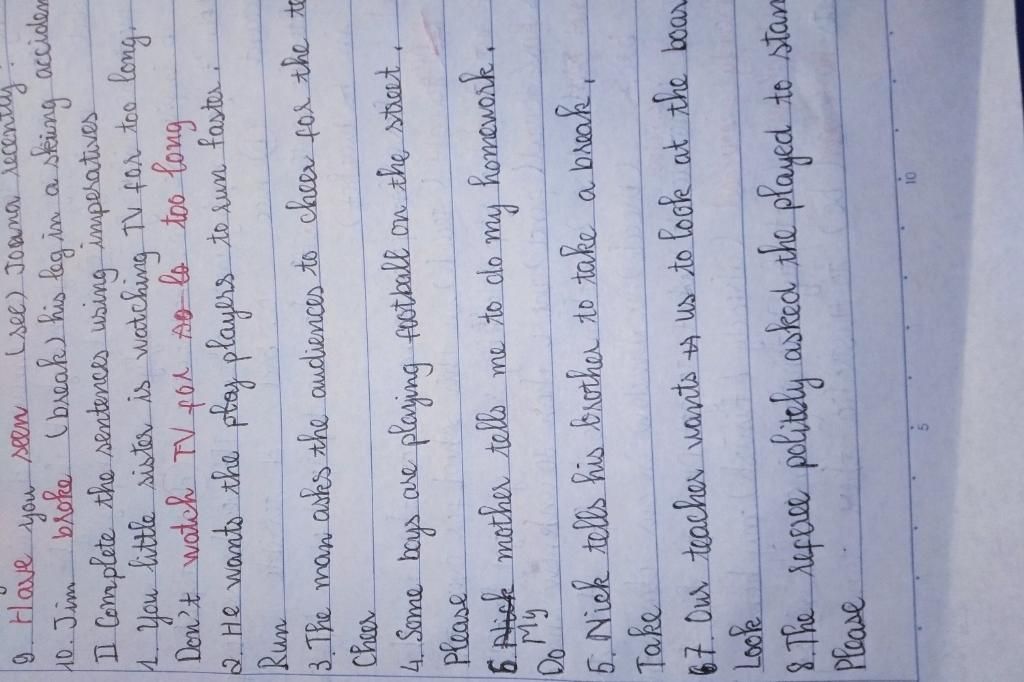 9. Have you seen (see) Joanna recently?
10. Jim broke (break) his leg in a skiing acciden
II Complete the sentences using imperatives
1. You little sister is watching TV for too long.
Don't watch TV for so lo too long
2. He wants the play players to run faster.
Run
3. The man asks the audiences to cheer for the te
Cheer
4. Some boys are playing football on the street.
Please
5. Nick mother tells me to do my homework.
My
Do
5. Nick tells his brother to take a break.
Take
67 Our teacher wants us to look at the boar
Look
8. The referee politely asked the played to stan
Please
5
10